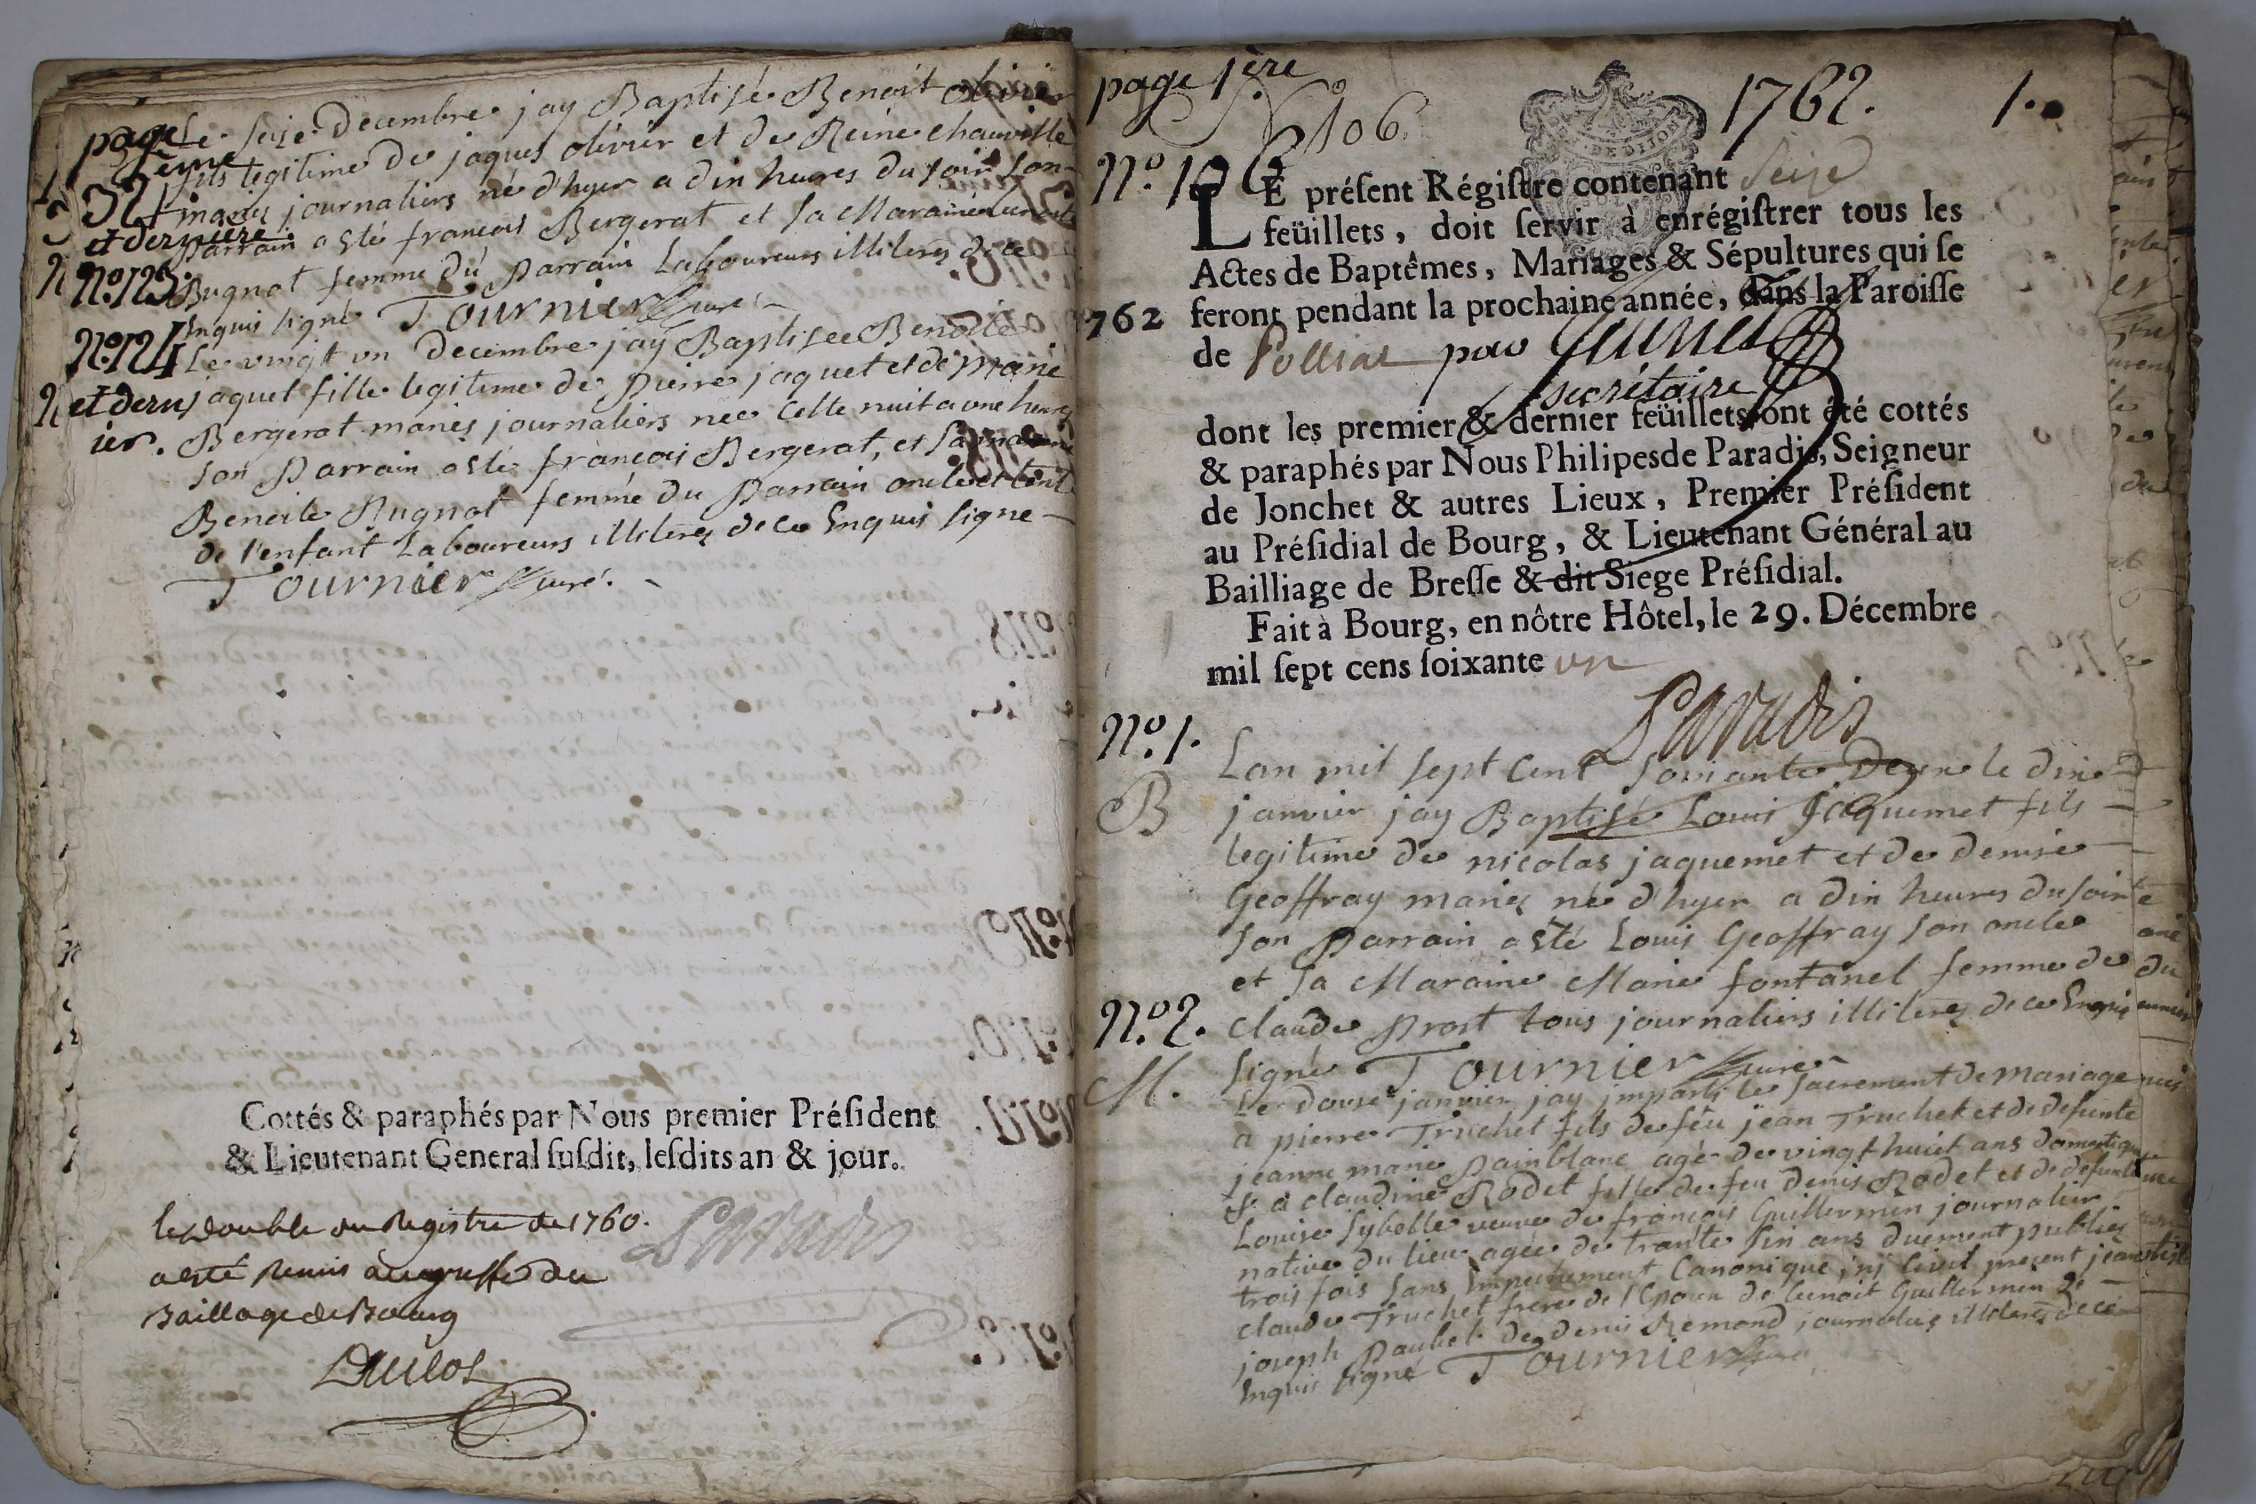 page
32eme
et dernière
Le seize decembre jay Baptisé Benoit olivier
fils legitime de jaques olivier et de Reine chauville
mariez journaliers né d'hyer a dix heures du soir son
parrain a esté francois Bergerat et sa Maraine
N°. 123. Bugnot femme du parrain Laboureurs illiterez de ce
Enquis signé Tournier Curé
N°. 124 Le vingt un decembre jay Baptisee Benoite
et dern jaquet fille legitime de pierre jaquet et de marie
ier. Bergerat mariés journaliers nee cette nuit a une heure
son parrain a esté francois Bergerat, et sa maraine
Benoite Bugnot femme du parrain oncle et tante
de l'enfant Laboureurs illiterez de ce Enquis signe
Tournier Curé.
Cottés & paraphés par Nous premier Président
& Lieutenant General susdit, lesdits an & jour.
le double du Registre de 1760.
a esté remis au greffe du
Baillage de Bourg
Paradis
page 1ère
1762.
1.
106.
N°. 106
LE présent Régistre contenant Seize
feüillets, doit servir à enrégistrer tous les
Actes de Baptêmes, Mariages & Sépultures qui se
762 feront pendant la prochaine année, dans la Paroisse
de Polliat pour
secrétaire
dont les premier & dernier feüillets ont été cottés
& paraphés par Nous Philipes de Paradis, Seigneur
de Jonchet & autres Lieux, Premier Président
au Présidial de Bourg, & Lieutenant Général au
Bailliage de Bresse & dit Siege Présidial.
Fait à Bourg, en nôtre Hôtel, le 29. Décembre
mil sept cens soixante un
Paradis
N°. 1.
B
Lan mil sept Cent soixante Deux le dix
janvier jay Baptisé Louis Jaquemet fils
legitime de nicolas jaquemet et de denise
Geoffray mariez né d'hyer a dix heures du soir
son parrain a esté Louis Geoffray son oncle
et sa Maraine Marie fontanel femme de
N°. 2. claude prost tous journaliers illiterez de ce Enquis
M.
signé Tournier Curé
Le douze janvier jay imparti le sacrement de mariage
a pierre Truchet fils de feu jean Truchet et de defunte
jeanne marie painblanc agé de vingt huict ans domestique
& a claudine Rodet fille de feu denis Rodet et de defunte
Louise Sybelle veuve de francois Guillermin journalier
native du lieu agée de trante six ans duement publiez
trois fois sans Empechement Canonique, present jean
claude Truchet frere de l'Epoux de benoit Guillermin de
joseph Paubel de denis Remond journaliers illiterez de ce
Enquis signé Tournier Curé